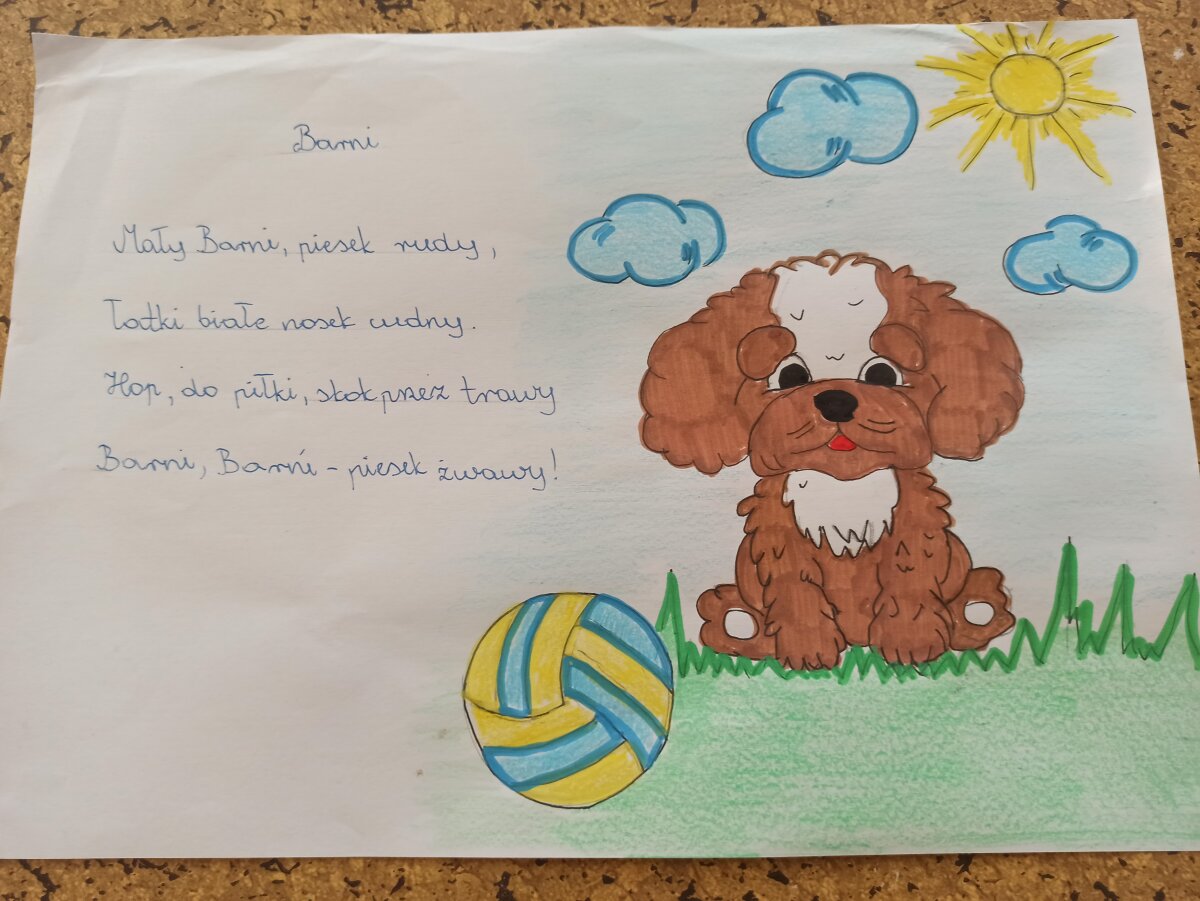 Barni
Mały Barni, piesek rudy,
Łatki białe nosek cudny.
Hop, do piłki, skok przez trawy
Barni, Barni - piesek żwawy!